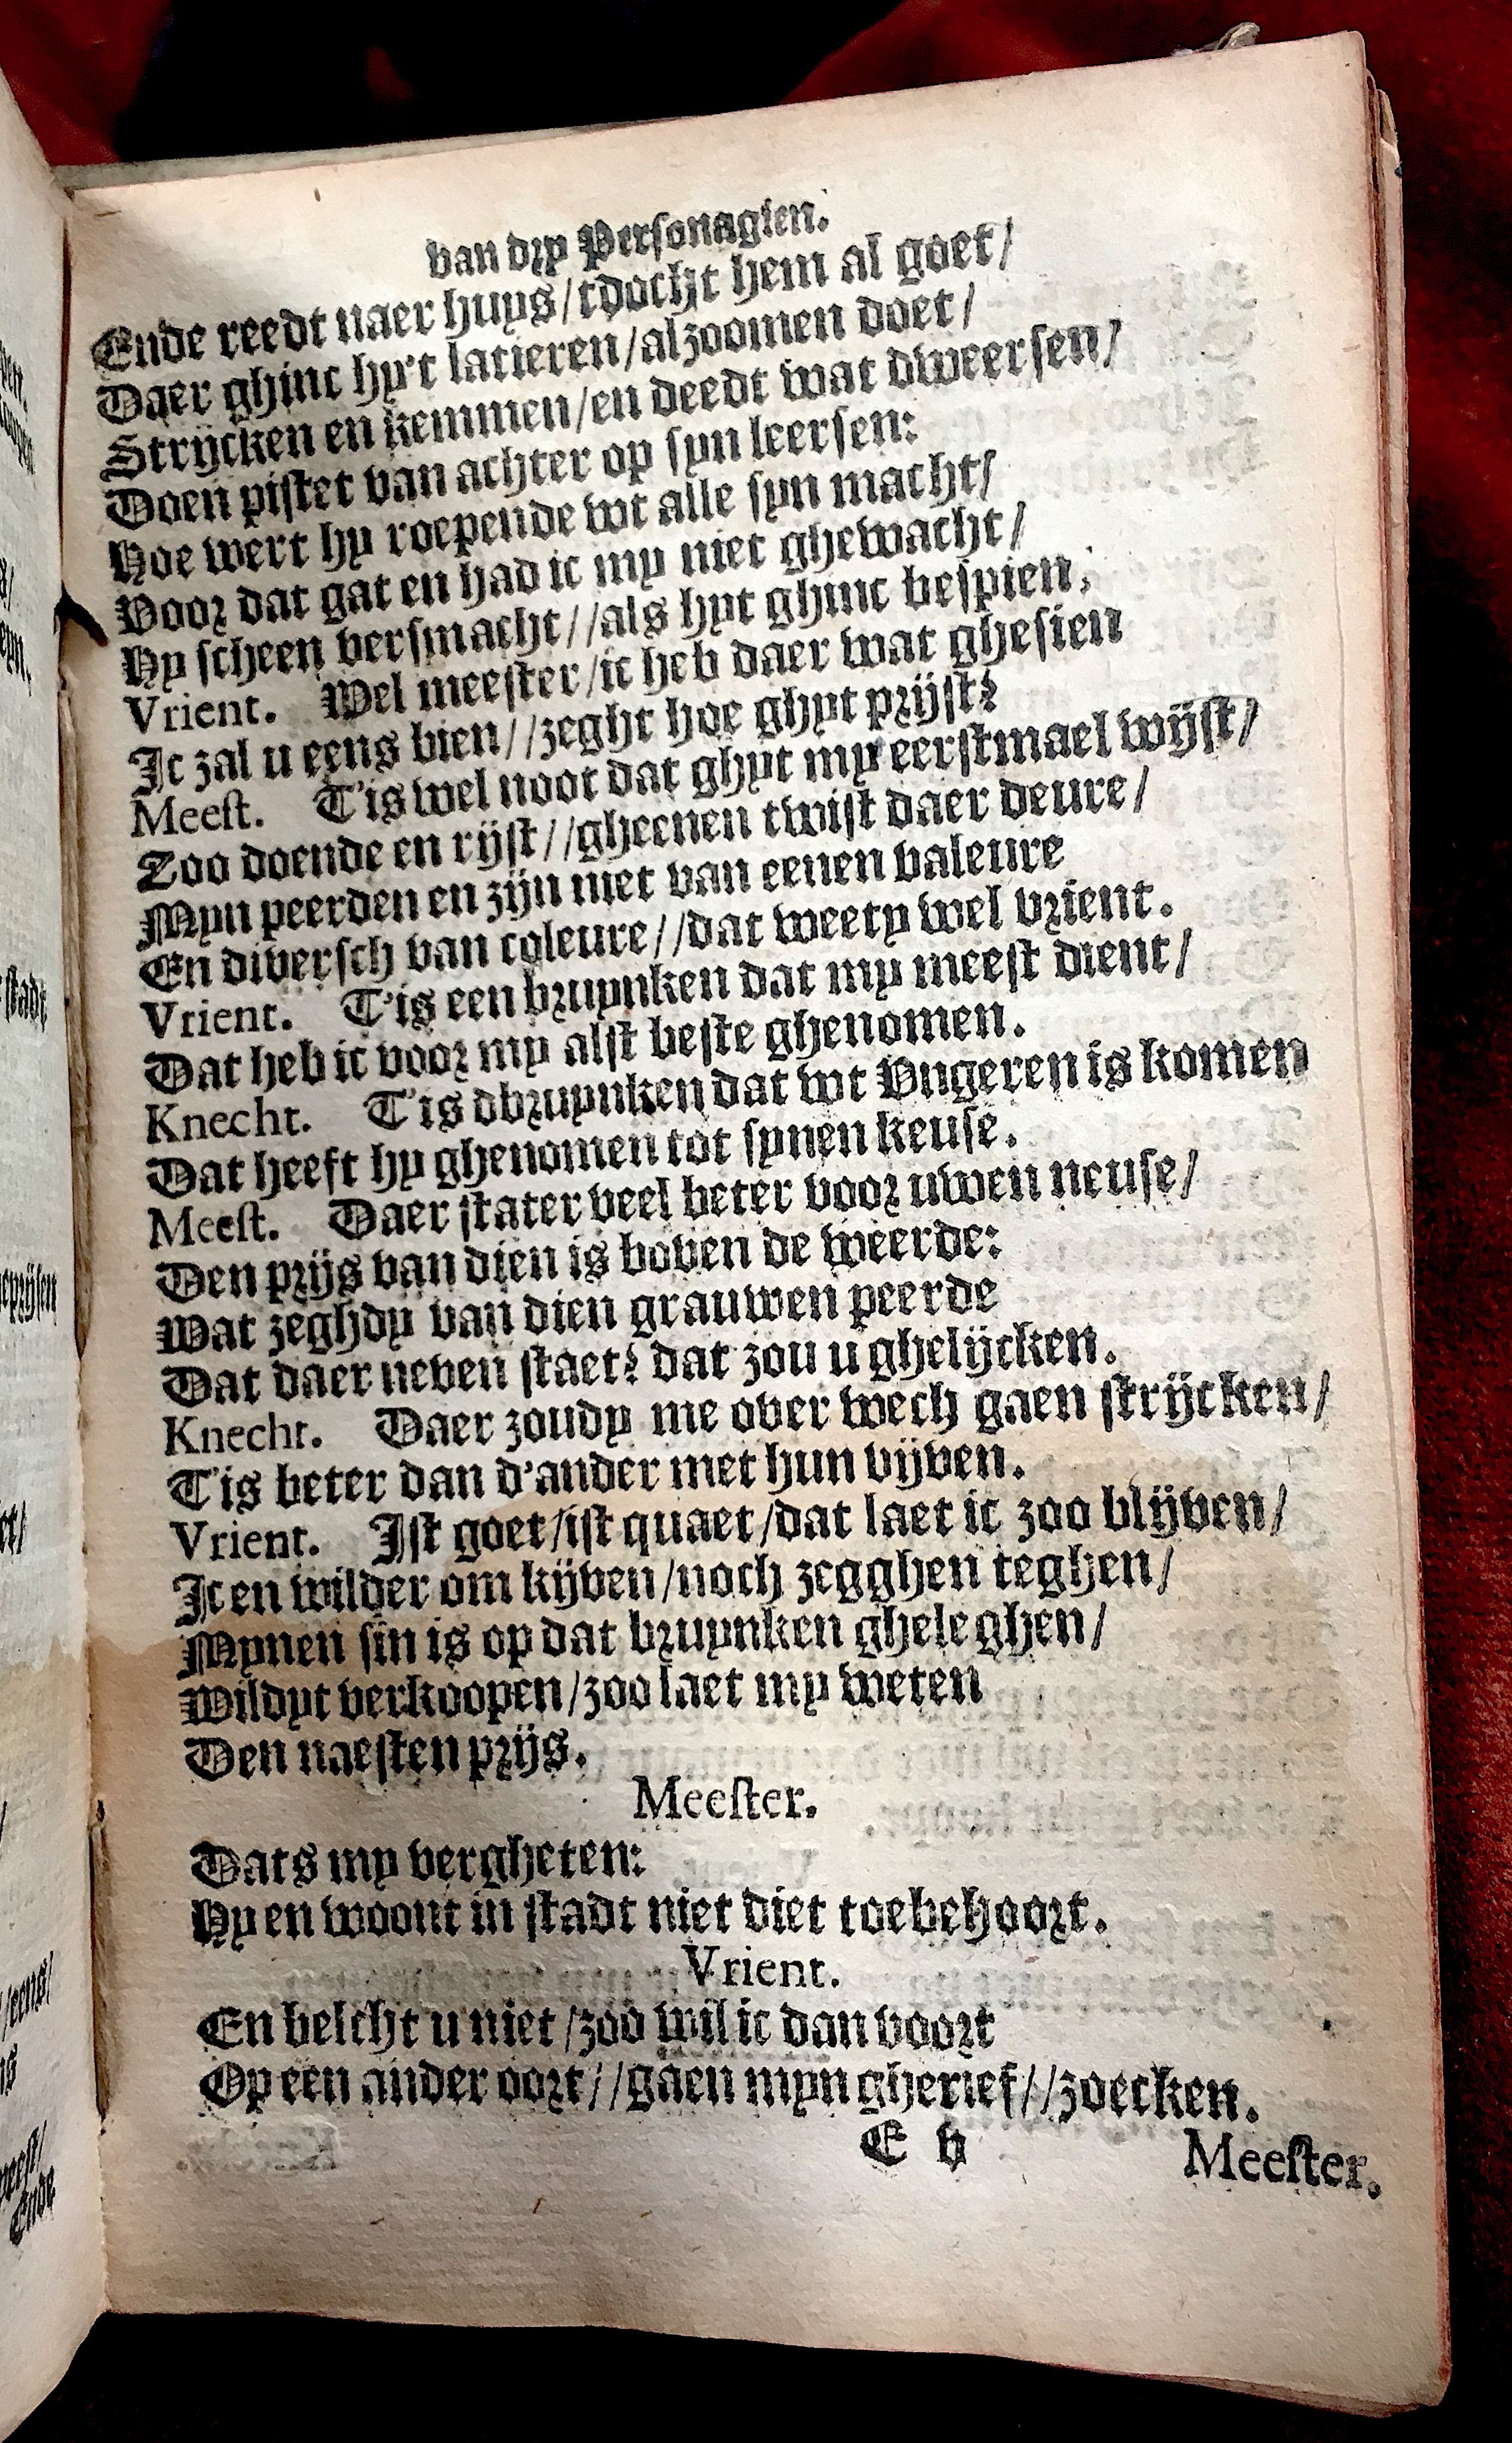 van dry Personagien.
Ende reedt naer huys/tdocht hem al goet/
Daer ghinc hy't latieren/alzoomen doet/
Strijcken en kemmen/en deedt wat dweersen/
Doen pistet van achter op syn leersen:
Hoe wert hy roepende wt alle syn macht/
Voor dat gat en had ic my niet ghewacht/
Hy scheen versmacht//als hyt ghinc bespien.
Vrient. Wel meester/ic heb daer wat ghesien
Ic zal u eens bien//zeght hoe ghyt prijst?
Meest. T'is wel noot dat ghyt my eerstmael wijst/
Zoo doende en rijst//gheenen twist daer deure/
Myn peerden en zijn niet van eenen valeure
En diversch van coleure//dat weety wel vrient.
Vrient. T'is een bruynken dat my meest dient/
Dat heb ic voor my alst beste ghenomen.
Knecht. T'is dbruynken dat wt Vngeren is komen
Dat heeft hy ghenomen tot synen keuse.
Meest. Daer stater veel beter voor uwen neuse/
Den prijs van dien is boven de weerde:
Wat zeghdy van dien grauwen peerde
Dat daer neven staet? dat zou u ghelijcken.
Knecht. Daer zoudy me over wech gaen strijcken/
T'is beter dan d'ander met hun vijven.
Vrient. Ist goet/ist quaet/dat laet ic zoo blijven/
Ic en wilder om kijven/noch zegghen teghen/
Mynen sin is op dat bruynken gheleghen/
Wildyt verkoopen/zoo laet my weten
Den naesten prijs.
Meester.
Dats my vergheten:
Hy en woont in stadt niet diet toebehoort.
Vrient.
En belcht u niet/zoo wil ic dan voort
Op een ander oort//gaen myn gherief//zoecken.
E v
Meester.